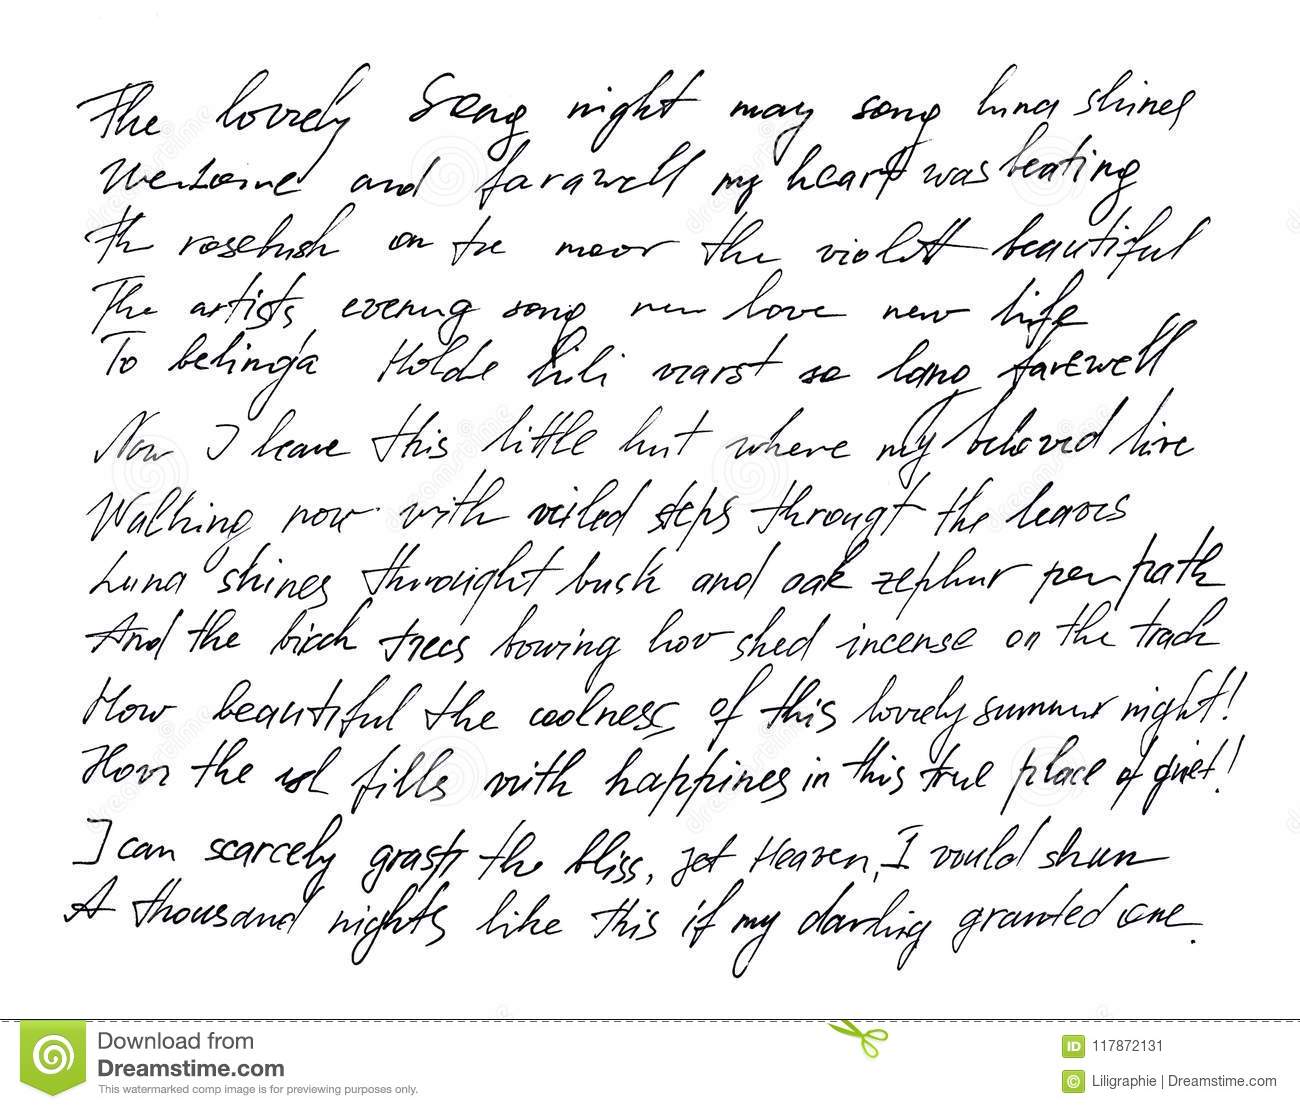 The lovely Song night may song luna shines
Welcome and farawell my heart was beating
Th rosebush on the moor the violett beautiful
The artists evening song new love new life
To belinda Holde Lili warst so lang farewell
Now I leave this little hut where my beloved live
Walking now with veiled steps througt the leaves
Luna shines throught bush and oak zephur per path
And the birch trees bowing how shed incense on the track
How beautiful the coolness of this lovely summer night!
How the fills with happines in this true place of quiet!
I can scarcely grasp the bliss, yet Heaven, I would shun
A thousand nights like this if my darling granted one.
Download from
Dreamstime.com
This watermarked comp image is for previewing purposes only.
ID 117872131
© Liligraphie | Dreamstime.com